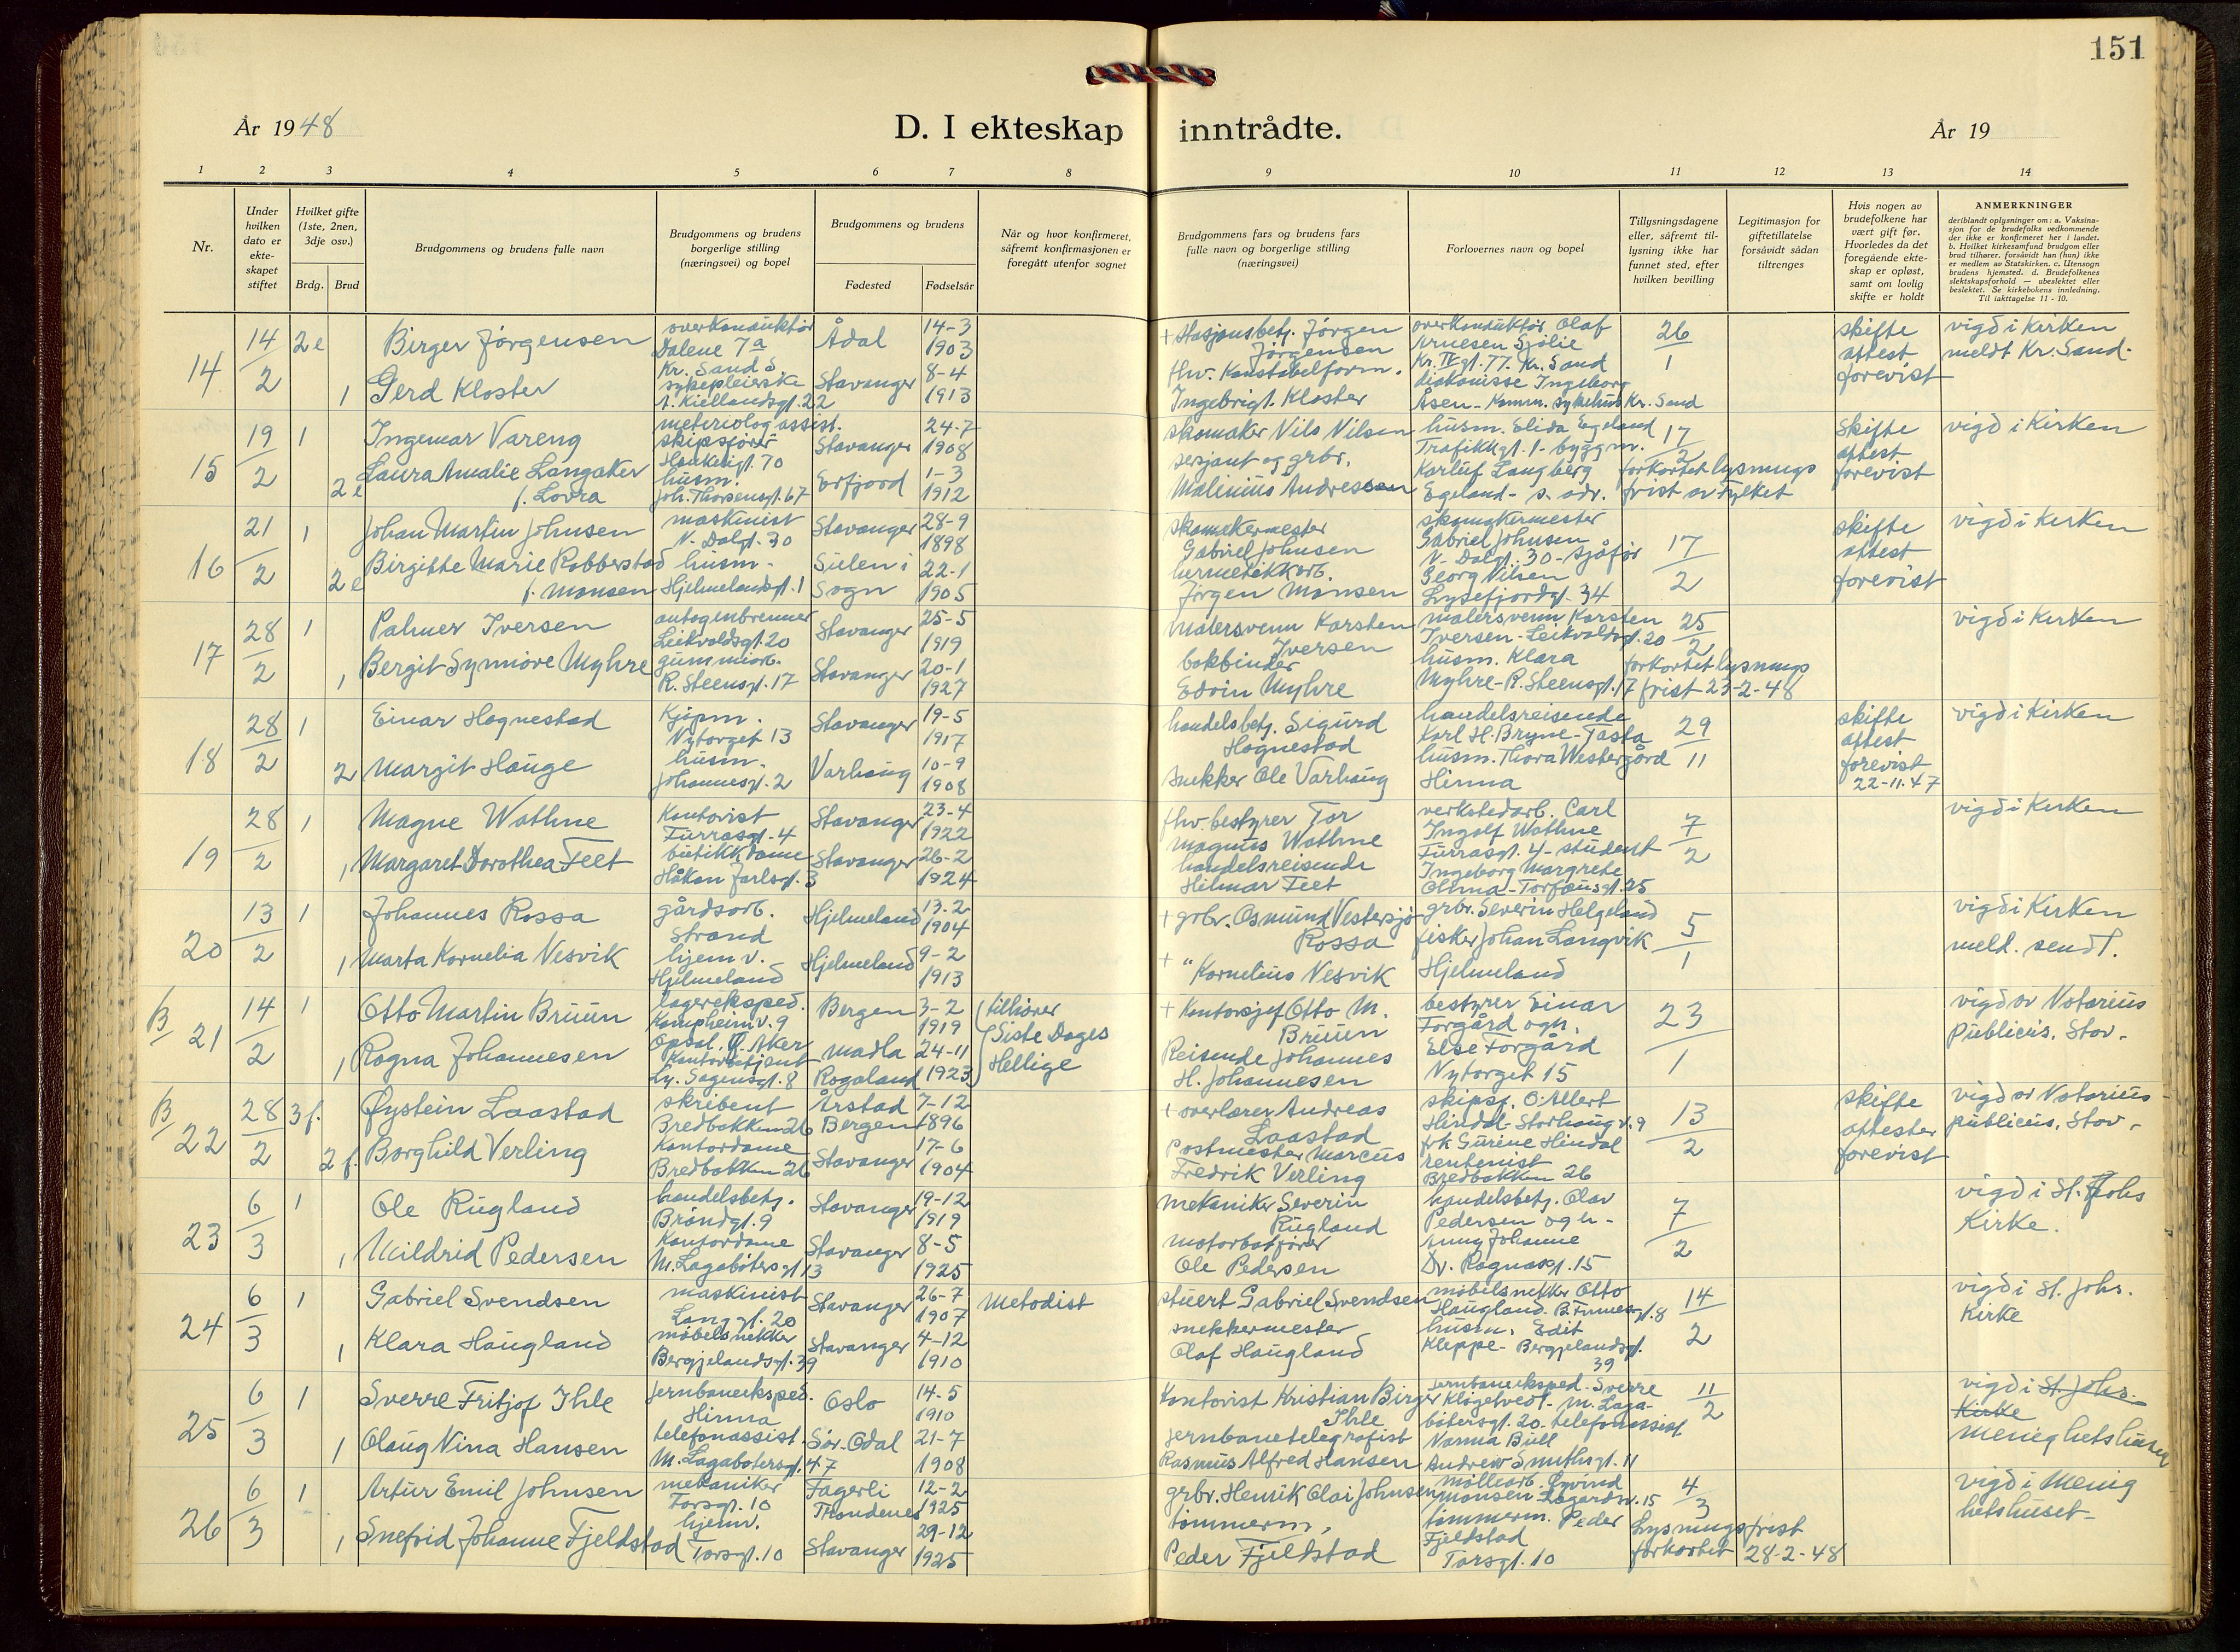 151
År 1948
D. I ekteskap inntrådte.
År 19
1 2 3 4 5 6 7 8 9 10 11 12 13 14
Nr.
Under hvilken dato er ekte- skapet stiftet
Hvilket gifte (1ste, 2nen, 3dje osv.)
Brdg. Brud
Brudgommens og brudens fulle navn
Brudgommens og brudens borgerlige stilling (næringsvei) og bopel
Brudgommens og brudens
Fødested Fødselsår
Når og hvor konfirmeret, såfremt konfirmasjonen er foregått utenfor sognet
Brudgommens fars og brudens fars fulle navn og borgerlige stilling (næringsvei)
Forlovernes navn og bopel
Tillysningsdagene eller, såfremt til- lysning ikke har funnet sted, efter hvilken bevilling
Legitimasjon for giftetillatelse forsåvidt sådan tiltrenges
Hvis nogen av brudefolkene har vært gift før. Hvorledes da det foregående ekte- skap er opløst, samt om lovlig skifte er holdt
ANMERKNINGER
deriblandt oplysninger om: a. Vaksina- sjon for de brudefolks vedkommende der ikke er konfirmeret her i landet. b. Hvilket kirkesamfund brudgom eller brud tilhører, forsåvidt han (hun) ikke er medlem av Statskirken. c. Utensogn brudens hjemsted. d. Brudefolkenes slektskapsforhold — ubeslektet eller beslektet. Se kirkebokens innledning. Til iakttagelse 11 - 10.
14 14/2 2e Birger Jörgensen overkonduktör Dalene 7a Kr. Sand S Ådal 14-3 1903 + stasjonsbetj. Jörgen Jörgensen overkonduktör Olaf Arnesen Sjölie Kr. IVgt. 77. Kr. Sand 26/1 skifte attest forevist vigd i Kirken meldt Kr. Sand.
1 Gerd Kloster sykepleierske A. Kiellandsgt. 22 Stavanger 8-4 1913 fhv. Konstabelform. Ingebrigt. Kloster diakonisse Ingeborg Åsen - Komm. sykehus Kr. Sand
15 19/2 1 Ingemar Vareng meteriolog assist. skipsförer Haukeligt. 70 Stavanger 24-7 1908 skomaker Nils Nilsen husm. Elida Egeland Trafikkgt. 1 - byggm. 17/2 skifte attest forevist vigd i Kirken
2e Laura Amalie Langaker f. Lovra husm. Joh. Thorsensgt. 67 Erfjord 1-3 1912 sersjant og grbr. Malinius Andressen Karluf Langberg Egeland - s. adr. forkortet lysnings frist av Fylket
16 21/2 1 Johan Martin Johnsen maskinist N. Dalgt. 30 Stavanger 28-9 1898 skomakermester Gabriel Johnsen skomakermester Gabriel Johnsen N. Dalgt. 30 - sjåför 17/2 skifte attest forevist vigd i Kirken
2e Birgitte Marie Robberstad f. Monsen husm. Hjelmelandsgt. 1 Sulen i Sogn 22-1 1905 hermetikkarb. Jörgen Monsen Georg Nilsen Lysefjordgt. 34
17 28/2 1 Palmer Iversen autogenbrenner Leikvoldsgt. 20 Stavanger 25-5 1919 malersvenn Karsten Iversen malersvenn Karsten Iversen - Leikvoldsgt. 20 25/2 vigd i Kirken
1 Bergit Synnöve Myhre gummiarb. R. Steensgt. 17 Stavanger 20-1 1927 bokbinder Edvin Myhre husm. Klara Myhre - R. Steensgt. 17 forkortet lysnings frist 23-2-48
18 28/2 1 Einar Hognestad Kjöpm. Nytorget 13 Stavanger 19-5 1917 handelsbetj. Sigurd Hognestad handelsreisende Karl H. Bryne - Tasta 29/11 skifte attest forevist 22-11.47 vigd i Kirken
2 Margit Hauge husm. Johannesgt. 2 Varhaug 10-9 1908 snekker Ole Varhaug husm. Thora Westergård Hinna
19 28/2 1 Magne Wathne Kontorist Furrasgt. 4 Stavanger 23-4 1922 fhv. bestyrer Tor Magnus Wathne verkstedarb. Carl Ingolf Wathne Furrasgt. 4 - student 7/2 vigd i Kirken
1 Margaret Dorothea Feet butikkdame Håkon Jarlsgt. 3 Stavanger 26-2 1924 handelsreisende Hilmar Feet Ingeborg Margrete Olima - Torfæusgt. 25
20 13/2 1 Johannes Rossa gårdsarb. Strand Hjelmeland 13-2 1904 + grbr. Osmund Vestersjö Rossa grbr. Severin Helgeland 5/1 vigd i Kirken meld. sendt.
1 Marta Kornelia Nesvik hjemv. Hjelmeland Hjelmeland 9-2 1913 + " Kornelius Nesvik fisker Johan Langvik Hjelmeland
B 21 14/2 1 Otto Martin Bruun lagereksped. Kampheimv. 9 Opsal. Ö. Aker Bergen 3-2 1919 tilhörer Siste Dages Hellige + Kontorsjef Otto M. Bruun bestyrer Einar Forgård og h. 23/1 vigd av Notarius Publicus. Stav.
1 Ragna Johannesen Kontorbetjent Ly. Sagensgt. 8 Madla Rogaland 24-11 1923 Reisende Johannes H. Johannesen Else Forgård Nytorget 15
B 22 28/2 3f. Øystein Laastad skribent Bredbakken 26 Årstad Bergen 7-12 1896 + overlærer Andreas Laastad skipsf. O. Albert Hindal - Storhaug v. 9 13/2 skifte attester forevist vigd av Notarius publicus. Stav.
2f. Borghild Verling Kontordame Bredbakken 26 Stavanger 17-6 1904 Postmester Marcus Fredrik Verling frk Gurine Hindal rentenist Bredbakken 26
23 6/3 1 Ole Rugland handelsbetj. Bröndgt. 9 Stavanger 19-12 1919 mekaniker Severin Rugland handelsbetj. Olav Pedersen og h - 7/2 vigd i St. Johs Kirke.
1 Mildrid Pedersen Kontordame M. Lagabötersgt 13 Stavanger 8-5 1925 motorbåtförer Ole Pedersen Anny Johanne Dr. Ragnasgt. 15
24 6/3 1 Gabriel Svendsen maskinist Langgt. 20 Stavanger 26-7 1907 Metodist stuert Gabriel Svendsen möbelsnekker Otto Haugland. gt. 8 14/2 vigd i St. Johs. Kirke
1 Klara Haugland möbelsnekker Bergjelandsgt. 39 Stavanger 4-12 1910 snekkermester Olaf Haugland husm. Edit Kleppe - Bergjelandsgt. 39
25 6/3 1 Sverre Fritjof Ihle jernbaneeksped. Hinna Oslo 14-5 1910 Kontorist Kristian Birger Ihle jernbaneeksped. Sverre Klögetvedt - M. Laga- bötersgt. 20. telefonassist 11/2 vigd i St. Johs. Kirke menighetshuset
1 Olaug Nina Hansen telefonassist. M. Lagabötersgt. 47 Sör. Odal 21-7 1908 jernbanetelegrafist Rasmus Alfred Hansen Norma Bull Andrew Smithsgt. 11
26 6/3 1 Artur Emil Johnsen mekaniker Torsgt. 10 Fagerli Trondenes 12-2 1925 grbr. Henrik Olai Johnsen möllearb. Eyvind Monsen - Lagårdsv. 15 4/3 vigd i Menig hetshuset
1 Snefrid Johanne Fjeldstad hjemv. Torsgt. 10 Stavanger 29-12 1925 tömmerm. Peder Fjeldstad tömmerm. Peder Fjeldstad Torsgt. 10 Lysningsfrist forkortet 28-2-48